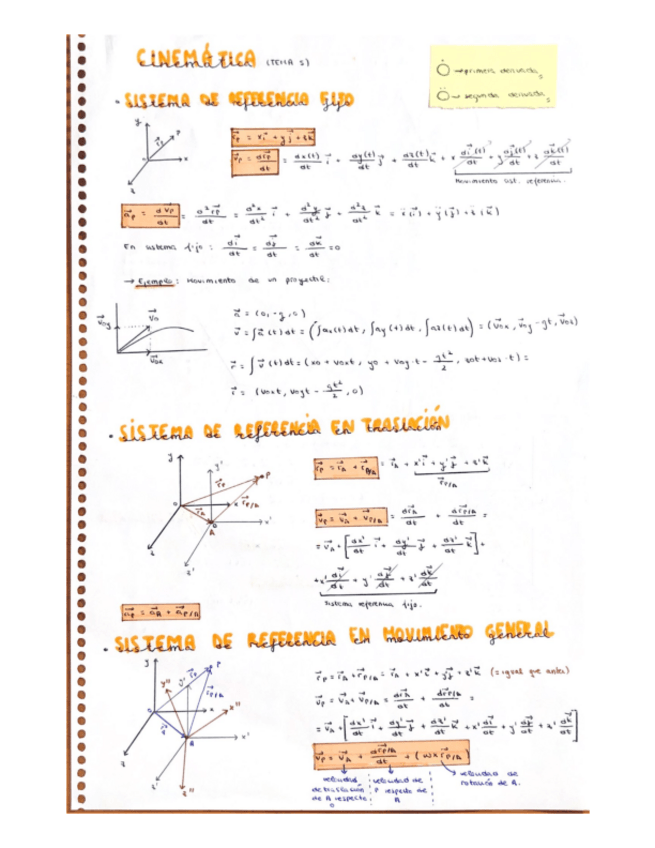 CINEMÁTICA (TEMA 5)
Ȯ → primera derivada
Ö → segunda derivada
· SISTEMA DE REFERENCIA FIJO
y
P
r⃗p
x
z
r⃗p = xi⃗ + yj⃗ + zk⃗
v⃗p = dr⃗p/dt = dx(t)/dt i⃗ + dy(t)/dt j⃗ + dz(t)/dt k⃗ + x di⃗(t)/dt + y dj⃗(t)/dt + z dk⃗(t)/dt
Movimiento sist. referencia.
a⃗p = dv⃗p/dt = d²r⃗p/dt² = d²x/dt² i⃗ + d²y/dt² j⃗ + d²z/dt² k⃗ = ẍ(i⃗) + ÿ(j⃗) + z̈(k⃗)
En sistema fijo: di⃗/dt = dj⃗/dt = dk⃗/dt = 0
→ Ejemplo: Movimiento de un proyectil:
v⃗oy
v⃗o
v⃗ox
a⃗ = (0, -g, 0)
v⃗ = ∫a⃗(t)dt = (∫ax(t)dt, ∫ay(t)dt, ∫az(t)dt) = (v⃗ox, v⃗oy - gt, v⃗oz)
r⃗ = ∫v⃗(t)dt = (xo + voxt, yo + voy·t - gt²/2, zo + voz·t) =
r⃗ = (voxt, voyt - gt²/2, 0)
· SISTEMA DE REFERENCIA EN TRASLACIÓN
y
y'
P
r⃗p
r⃗A
r⃗P/A
x
A
x'
z
z'
r⃗p = r⃗A + r⃗P/A = r⃗A + x'i⃗ + y'j⃗ + z'k⃗
r⃗P/A
v⃗p = v⃗A + v⃗P/A = dr⃗A/dt + dr⃗P/A/dt =
= v⃗A + [dx'/dt i⃗ + dy'/dt j⃗ + dz'/dt k⃗] +
+ x' di⃗/dt + y' dj⃗/dt + z' dk⃗/dt
sistema referencia fijo.
a⃗p = a⃗A + a⃗P/A
· SISTEMA DE REFERENCIA EN MOVIMIENTO GENERAL
y
y''
y'
r⃗p
P
r⃗P/A
x
x''
A
x'
z
z'
z''
r⃗p = r⃗A + r⃗P/A = r⃗A + x'i⃗ + y'j⃗ + z'k⃗ (= igual que antes)
v⃗p = v⃗A + v⃗P/A = dr⃗A/dt + dr⃗P/A/dt =
= v⃗A + [dx'/dt i⃗ + dy'/dt j⃗ + dz'/dt k⃗ + x' di⃗/dt + y' dj⃗/dt + z' dk⃗/dt]
v⃗p = v⃗A + dr⃗P/A/dt + (ω x r⃗P/A)
velocidad de traslación de A respecto O
velocidad de P respecto de A
velocidad de rotación de A.